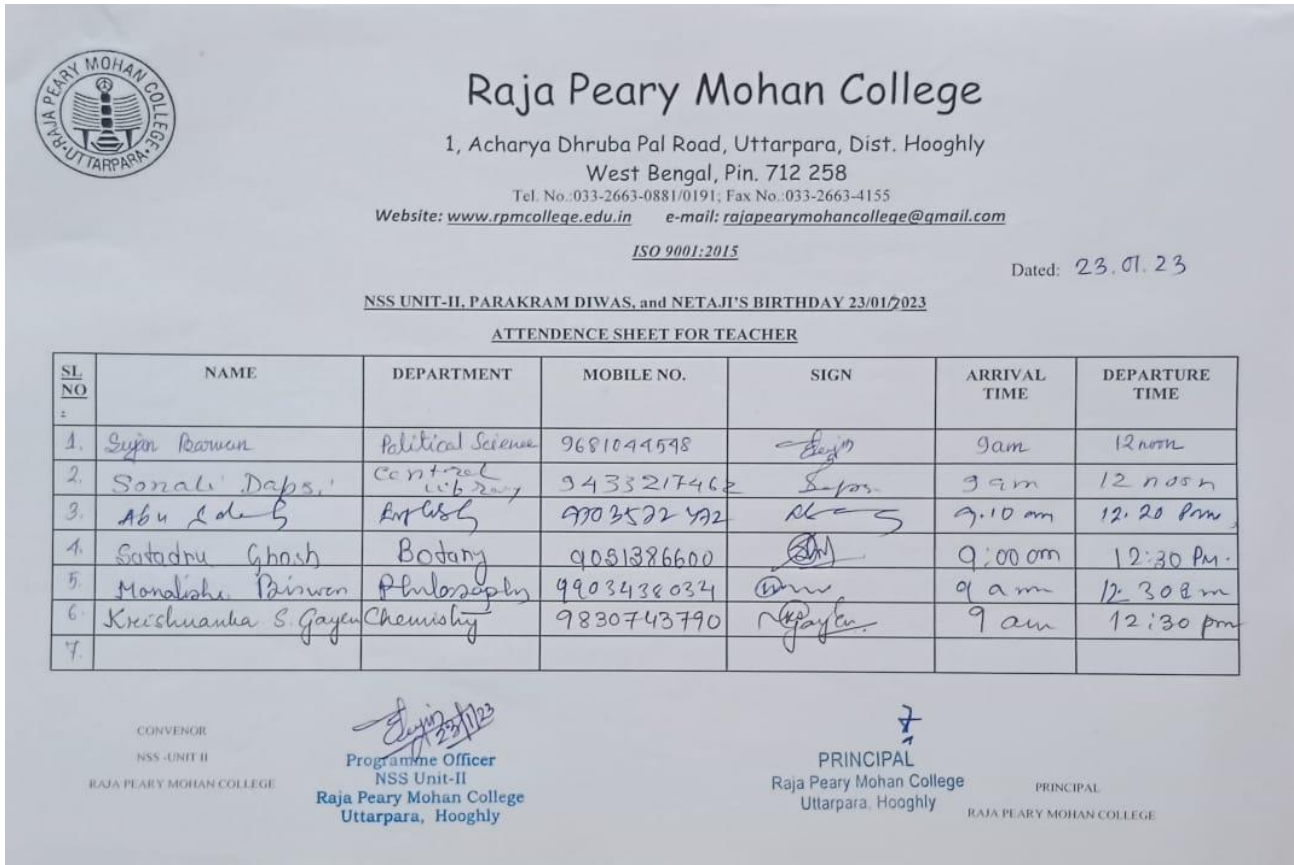 RAJA PEARY MOHAN COLLEGE
UTTARPARA
Raja Peary Mohan College
1, Acharya Dhruba Pal Road, Uttarpara, Dist. Hooghly
West Bengal, Pin. 712 258
Tel. No.:033-2663-0881/0191; Fax No.:033-2663-4155
Website: www.rpmcollege.edu.in e-mail: rajapearymohancollege@gmail.com
ISO 9001:2015
Dated: 23.01.23
NSS UNIT-II, PARAKRAM DIWAS, and NETAJI'S BIRTHDAY 23/01/2023
ATTENDENCE SHEET FOR TEACHER
SL NO : NAME DEPARTMENT MOBILE NO. SIGN ARRIVAL TIME DEPARTURE TIME
1. Sujin Barman Political Science 9681044548 9am 12 noon
2. Sonali Central Library 9433217462 9 am 12 noon
3. Abu English 9.10 am 12.20 Pm
4. Satadru Ghosh Botany 9051386600 9:00 am 12:30 PM.
5. Monalisha Biswas Philosophy 9903438034 9 am 12.30 pm
6. Krishnanka S. Gayen Chemistry 9830743790 Gayen 9 am 12:30 pm
7.
23/1/23
CONVENOR
NSS -UNIT II
RAJA PEARY MOHAN COLLEGE
Programme Officer
NSS Unit-II
Raja Peary Mohan College
Uttarpara, Hooghly
PRINCIPAL
Raja Peary Mohan College
Uttarpara, Hooghly
PRINCIPAL
RAJA PEARY MOHAN COLLEGE